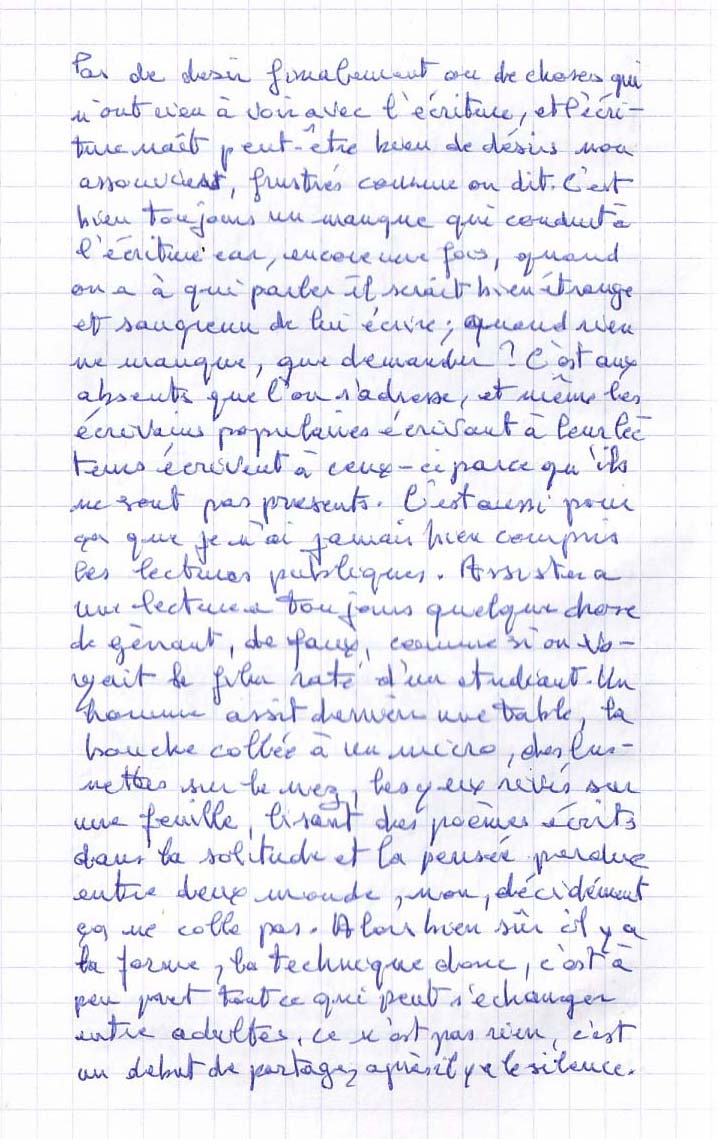 Pas de desir finalement ou de choses qui
n'ont rien à voir avec l'écriture, et l'écri-
ture naît peut-être bien de désirs non
assouvient, frustrés comme on dit. C'est
bien toujours un manque qui conduit à
l'écriture car, encore une fois, quand
on a à qui parler il serait bien étrange
et saugrenu de lui écrire; quand rien
ne manque, que demander ? C'est aux
absents que l'on s'adresse, et même les
écrivains populaires écrivant à leur lec
teurs écrivent à ceux-ci parce qu'ils
ne sont pas presents. C'est aussi pour
ça que je n'ai jamais bien compris
les lectures publiques. Assister a
une lecture a toujours quelque chose
de gênant, de faux, comme si on vo-
yait le film raté d'un etudiant. Un
homme assit derrière une table, la
bouche collée à un micro, des lu-
nettes sur le nez, les yeux rivés sur
une feuille, lisant des poèmes écrits
dans la solitude et la pensée perdue
entre deux monde, non, décidément
ça ne colle pas. Alors bien sûr il y a
la forme, la technique donc, c'est à
peu pret tout ce qui peut s'echanger
entre adultes, ce n'est pas rien, c'est
un debut de partage, après il y a le silence.